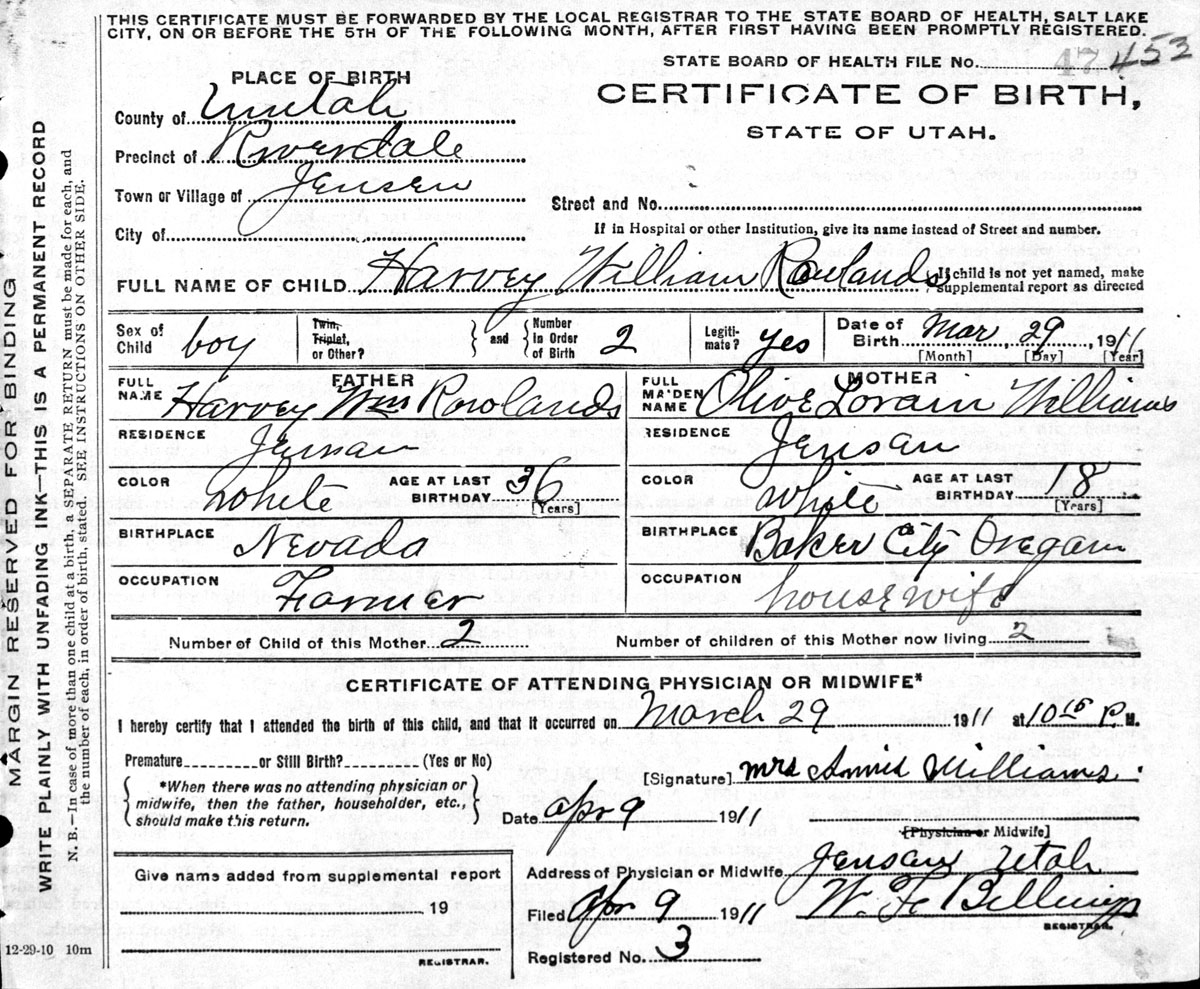 THIS CERTIFICATE MUST BE FORWARDED BY THE LOCAL REGISTRAR TO THE STATE BOARD OF HEALTH, SALT LAKE
CITY, ON OR BEFORE THE 5TH OF THE FOLLOWING MONTH, AFTER FIRST HAVING BEEN PROMPTLY REGISTERED.
STATE BOARD OF HEALTH FILE No. 47 453
PLACE OF BIRTH
CERTIFICATE OF BIRTH,
STATE OF UTAH.
County of Uintah
Precinct of Riverdale
Town or Village of Jensen
Street and No.
City of
If in Hospital or other Institution, give its name instead of Street and number.
FULL NAME OF CHILD Harvey William Rowlands { If child is not yet named, make
supplemental report as directed
Sex of Child boy
Twin, Triplet, or Other? } and { Number in Order of Birth 2
Legitimate? yes
Date of Birth Mar 29, 1911
[Month] [Day] [Year]
FATHER
FULL NAME Harvey Wm Rowlands
RESIDENCE Jensan
COLOR White AGE AT LAST BIRTHDAY 36 [Years]
BIRTHPLACE Nevada
OCCUPATION Farmer
MOTHER
FULL MAIDEN NAME Olive Lorain Williams
RESIDENCE Jensan
COLOR White AGE AT LAST BIRTHDAY 18 [Years]
BIRTHPLACE Baker City Oregan
OCCUPATION housewife
Number of Child of this Mother 2 Number of children of this Mother now living 2
CERTIFICATE OF ATTENDING PHYSICIAN OR MIDWIFE*
I hereby certify that I attended the birth of this child, and that it occurred on March 29 1911 at 10 15 P. M.
Premature or Still Birth? (Yes or No)
*When there was no attending physician or
midwife, then the father, householder, etc.,
should make this return.
[Signature] Mrs Annis Williams
Date Apr 9 1911
[Physician or Midwife]
Give name added from supplemental report
19
REGISTRAR.
Address of Physician or Midwife Jensan Utah
Filed Apr 9 1911 Billings
REGISTRAR.
Registered No. 3
12-29-10 10m
MARGIN RESERVED FOR BINDING
WRITE PLAINLY WITH UNFADING INK—THIS IS A PERMANENT RECORD
N. B.—In case of more than one child at a birth, a SEPARATE RETURN must be made for each, and
the number of each, in order of birth, stated. SEE INSTRUCTIONS ON OTHER SIDE.